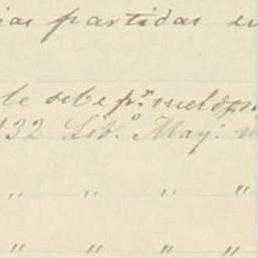 ias partidas en
le debe pr. metd
132 Lib.o May: n
" " " "
" " " "